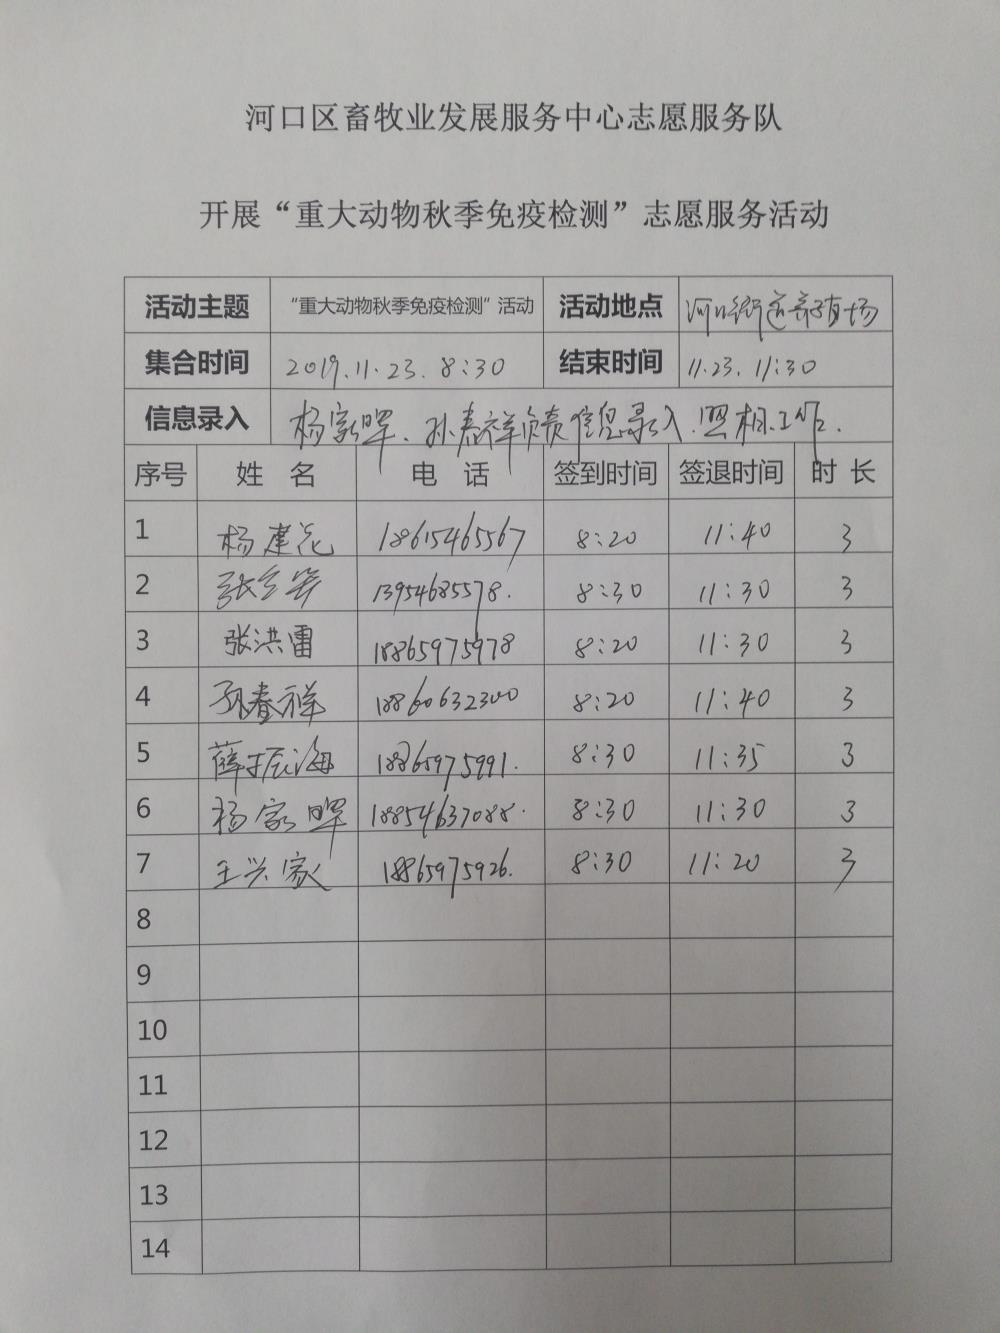 河口区畜牧业发展服务中心志愿服务队
开展“重大动物秋季免疫检测”志愿服务活动
活动主题 “重大动物秋季免疫检测”活动 活动地点 河口街道养殖场
集合时间 2019.11.23. 8:30 结束时间 11.23. 11:30
信息录入 杨家晖、孙春祥负责信息录入.照相工作.
序号 姓 名 电 话 签到时间 签退时间 时 长
1 杨建花 18615465567 8:20 11:40 3
2 张 13954685578. 8:30 11:30 3
3 张洪雷 18865975978 8:20 11:30 3
4 孙春祥 18860632300 8:20 11:40 3
5 薛振海 18865975991. 8:30 11:35 3
6 杨家晖 18854637088. 8:30 11:30 3
7 王兴家 18865975926. 8:30 11:20 3
8
9
10
11
12
13
14